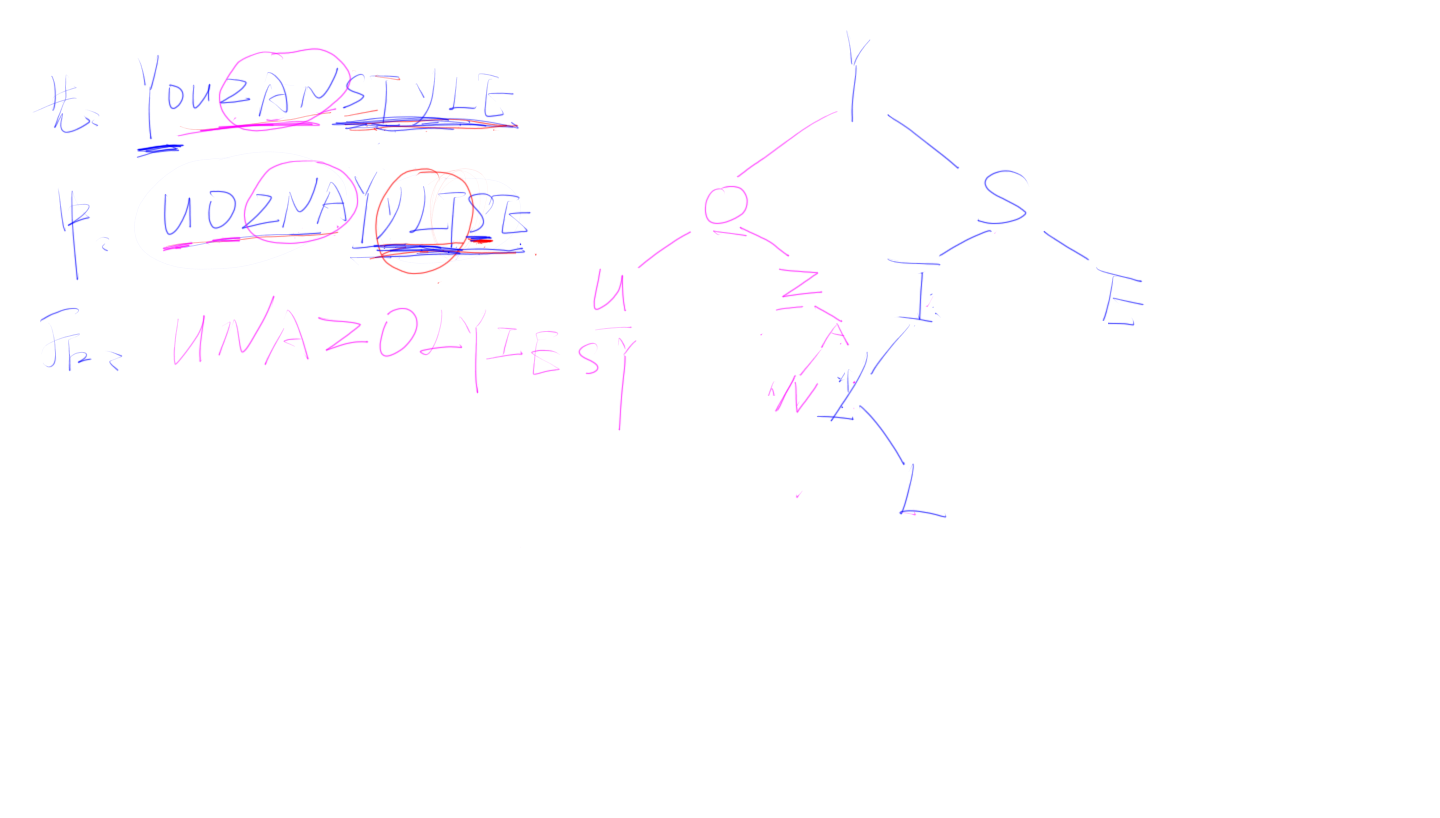 先: YOUZANSIYLE
中: UOZNAYYLISE
后: UNAZOLYIESY
Y
O S
U Z I E
A
N Y
L